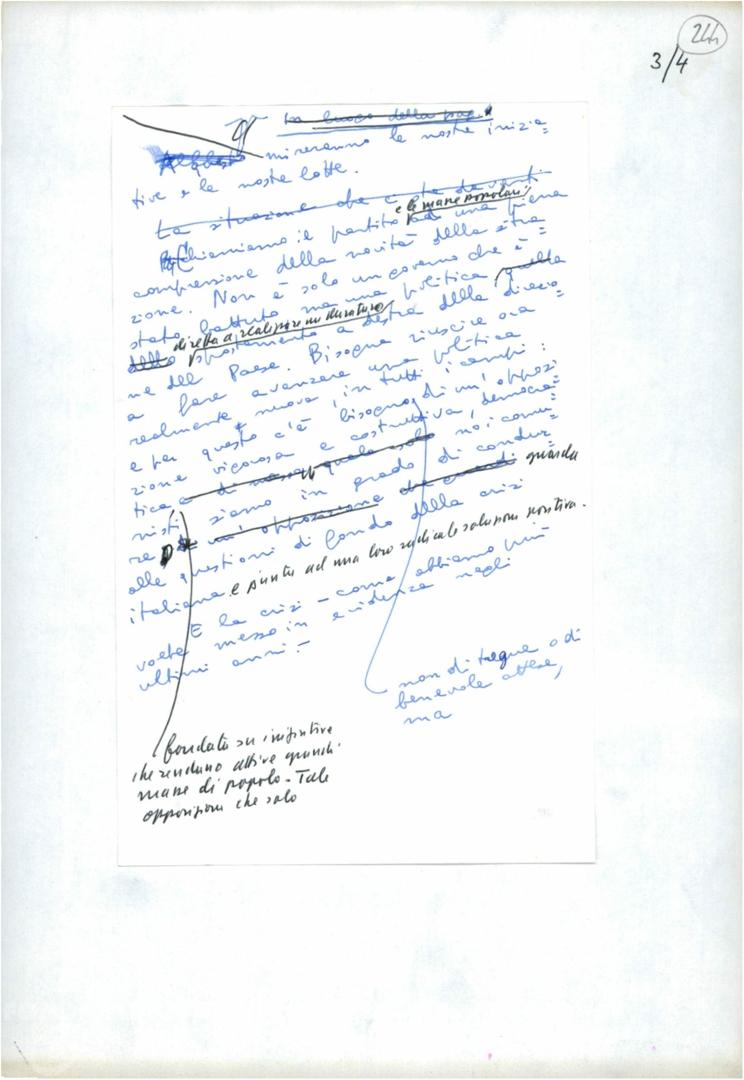 244
3/4
In luogo della pag.
mireranno le nostre inizia=
tive e le nostre lotte.
La situazione che ci sta davanti
e le masse popolari,
Richiamiamo il partito ad una piena
comprensione della novità della situa=
zione. Non è solo un governo che è
stato battuto ma una politica quella
diretta a realizzare un duraturo
dello spostamento a destra della direzio=
ne del Paese. Bisogna riuscire ora
a fare avanzare una politica
realmente nuova, in tutti i campi:
e per questo c'è bisogno di un'opposi
zione vigorosa e costruttiva, democra=
tica e di massa, quale solo noi comu=
nisti siamo in grado di condur=
re un'opposizione che guardi guarda
alle questioni di fondo della crisi
italiana e punta ad una loro radicale soluzione positiva.
E la crisi – come abbiamo più
volte messo in evidenza negli
ultimi anni –
non di tregua o di
benevole attese,
ma
fondata su iniziative
che rendano attive grandi
masse di popolo – Tale
opposizione che solo